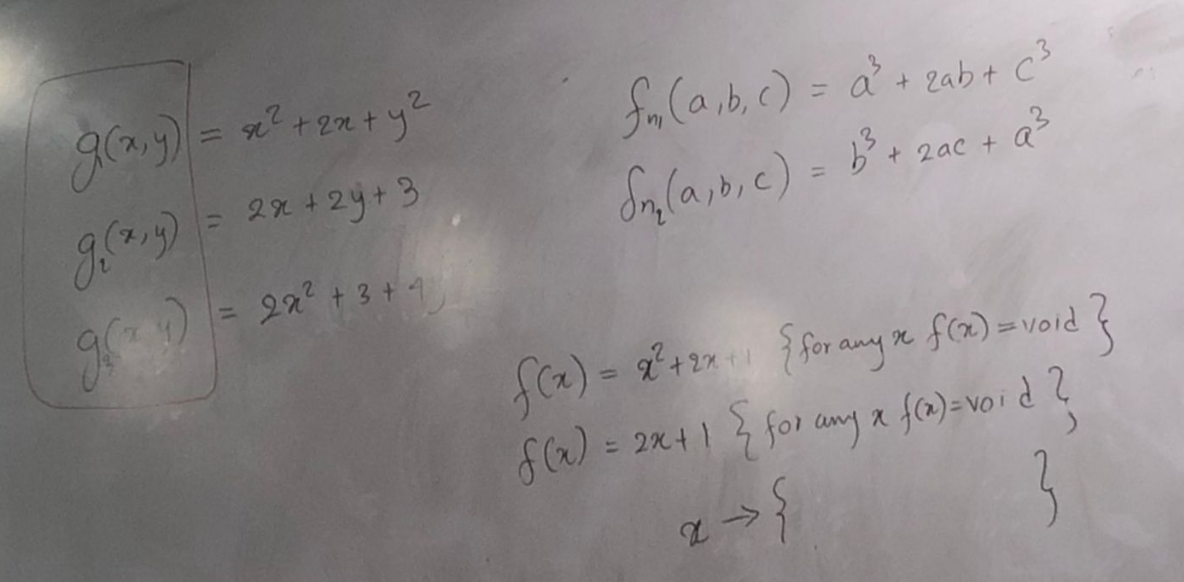 g(x,y) = x² + 2x + y²
g₂(x,y) = 2x + 2y + 3
g₃(x y) = 2x² + 3 +
fn₁(a,b,c) = a³ + 2ab + c³
fn₂(a,b,c) = b³ + 2ac + a³
f(x) = x² + 2x + 1 {for any x f(x) = void}
f(x) = 2x + 1 {for any x f(x) = void}
x → { }